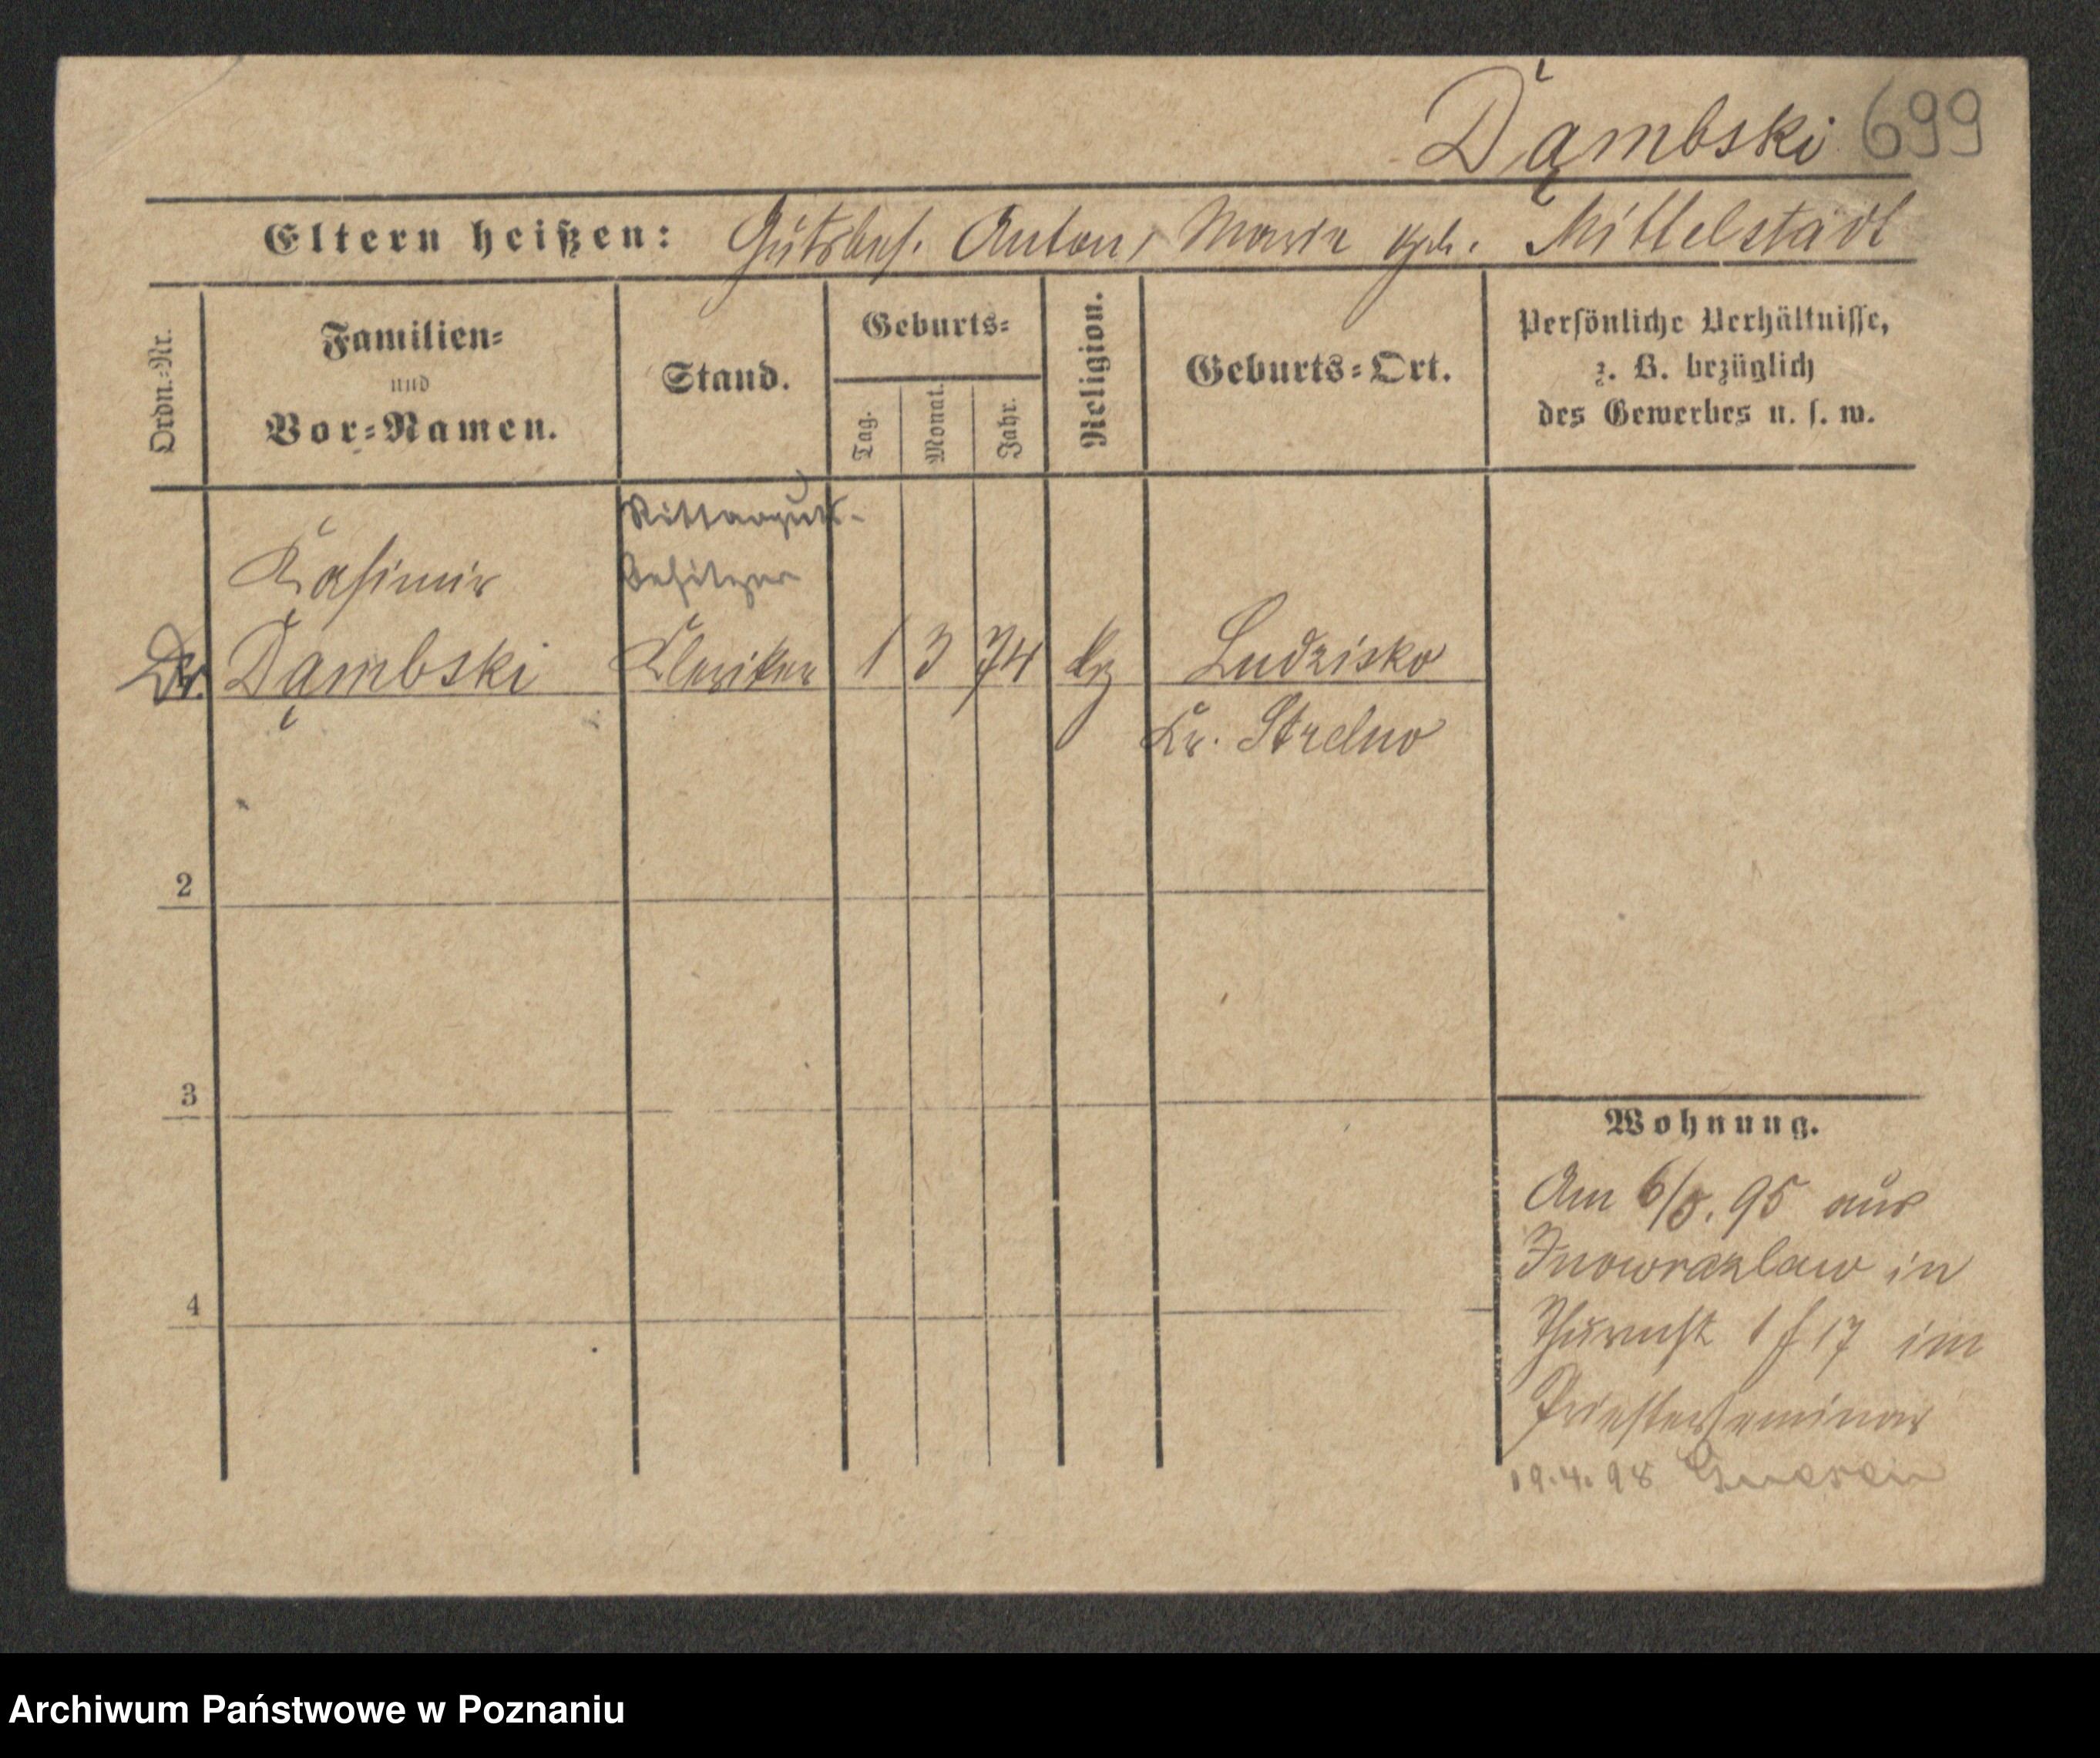 Dąmbski 699
Eltern heißen: Gutsbes. Anton, Maria geb. Mittelstädt
Ordn.=Nr.
Familien=
und
Vor=Namen.
Stand.
Geburts=
Tag.
Monat.
Jahr.
Religion.
Geburts=Ort.
Persönliche Verhältnisse,
z. B. bezüglich
des Gewerbes u. s. w.
Ritterguts-
besitzer
Kasimir
Dr. Dąmbski Kleriker 1 3 74 Ludzisko
Kr. Strelno
2
3
4
Wohnung.
Am 6/8. 95 aus
Inowrazlaw in
Thurmstr 17 im
Priesterseminar
19.4.98 Gnesen
Archiwum Państwowe w Poznaniu